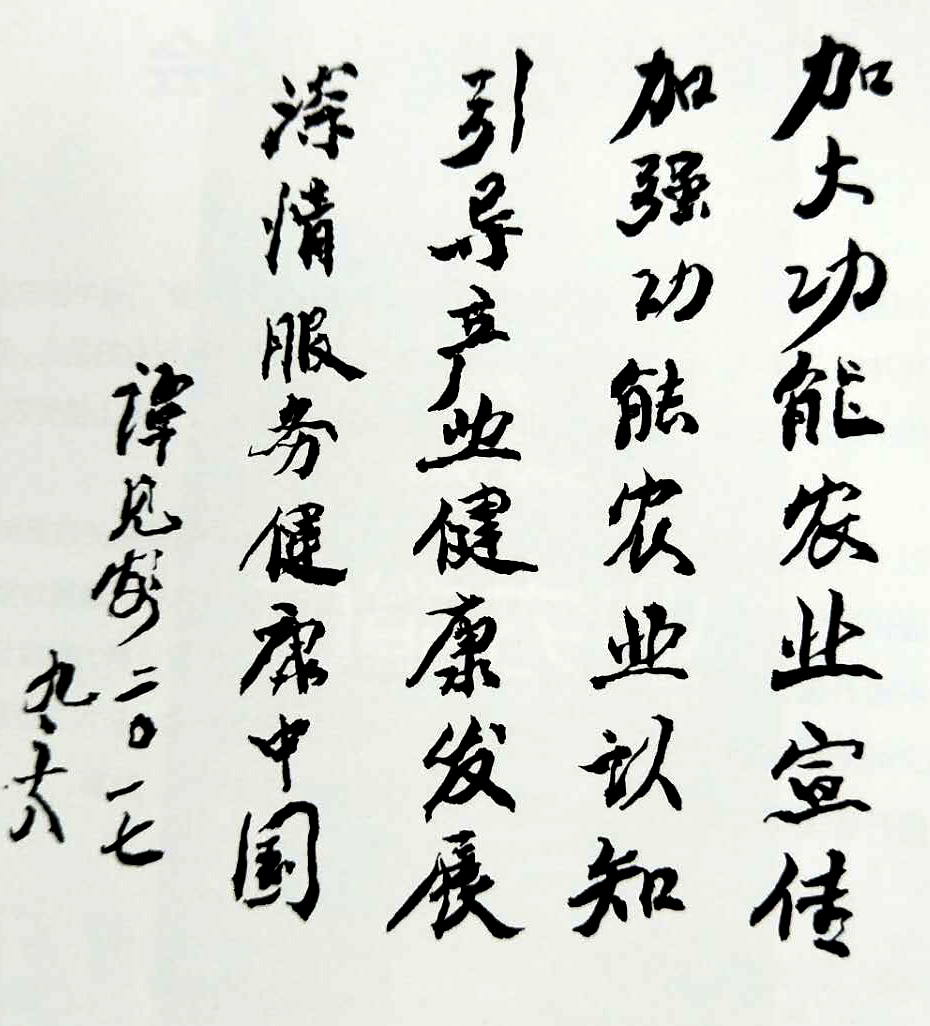 加大功能农业宣传
加强功能农业认知
引导产业健康发展
深情服务健康中国
谭见安二〇一七
九·十八